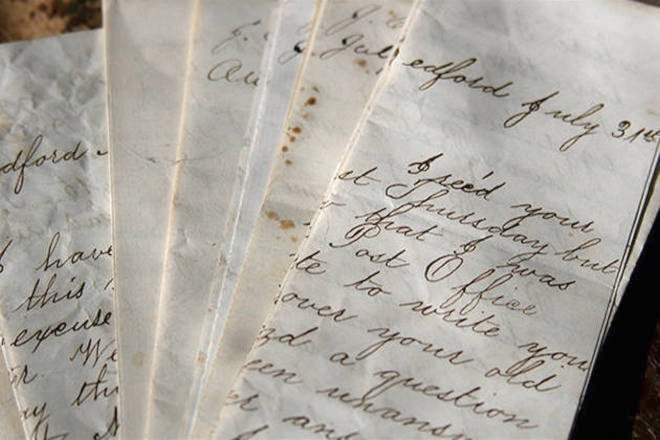 dford
I have
this
excuse
r. We
y thi
J.
Au
J.
Jul
edford July 31st
I rec'd your
st Thursday but
that I was
Post Office
te to write you
over your old
nd a question
een unansw
er an